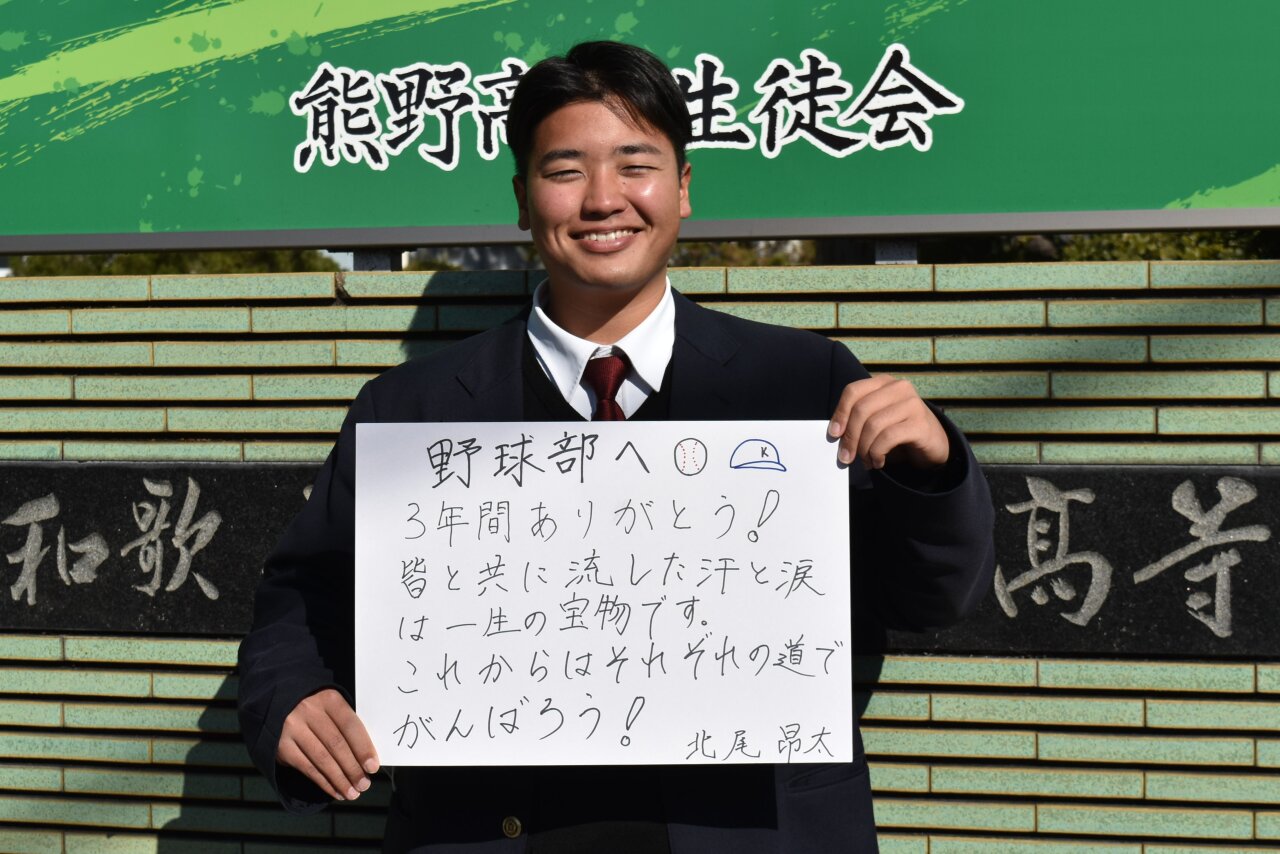 熊野高 生徒会
野球部へ
K
3年間ありがとう!
皆と共に流した汗と涙
は一生の宝物です。
これからはそれぞれの道で
がんばろう!
北尾 昂太
和歌
高等